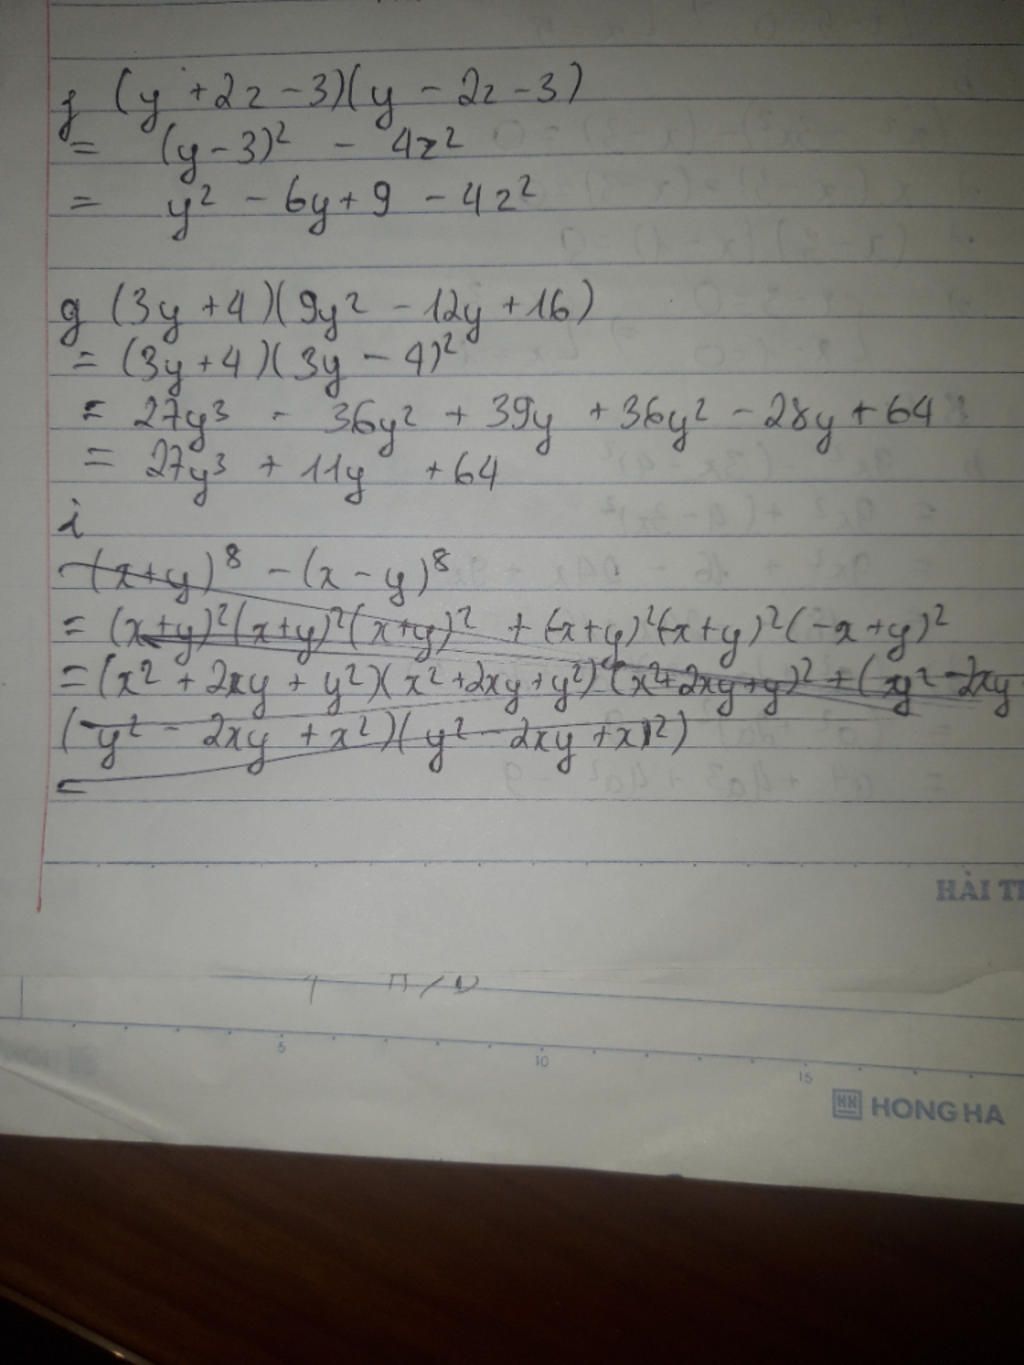 f (y + 2z - 3)(y - 2z - 3)
= (y - 3)² - 4z²
= y² - 6y + 9 - 4z²
g (3y + 4)(9y² - 12y + 16)
= (3y + 4)(3y - 4)²
= 27y³ - 36y² + 39y + 36y² - 28y + 64
= 27y³ + 11y + 64
i
(x+y)⁸ - (x - y)⁸
= (x+y)²(x+y)²(x+y)² + (-x+y)²(-x+y)²(-x+y)²
= (x² + 2xy + y²)(x² + 2xy + y²)(x² + 2xy + y)² + (xy² - 2xy
(y² - 2xy + x²)(y² - 2xy + x²)
=
HẢI T
5 10 15
HONG HA